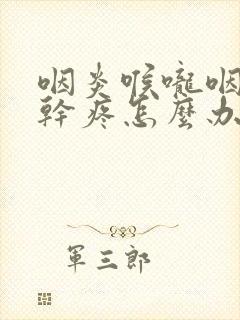 咽炎喉嚨咽
幹疼怎麼办
軍三郎